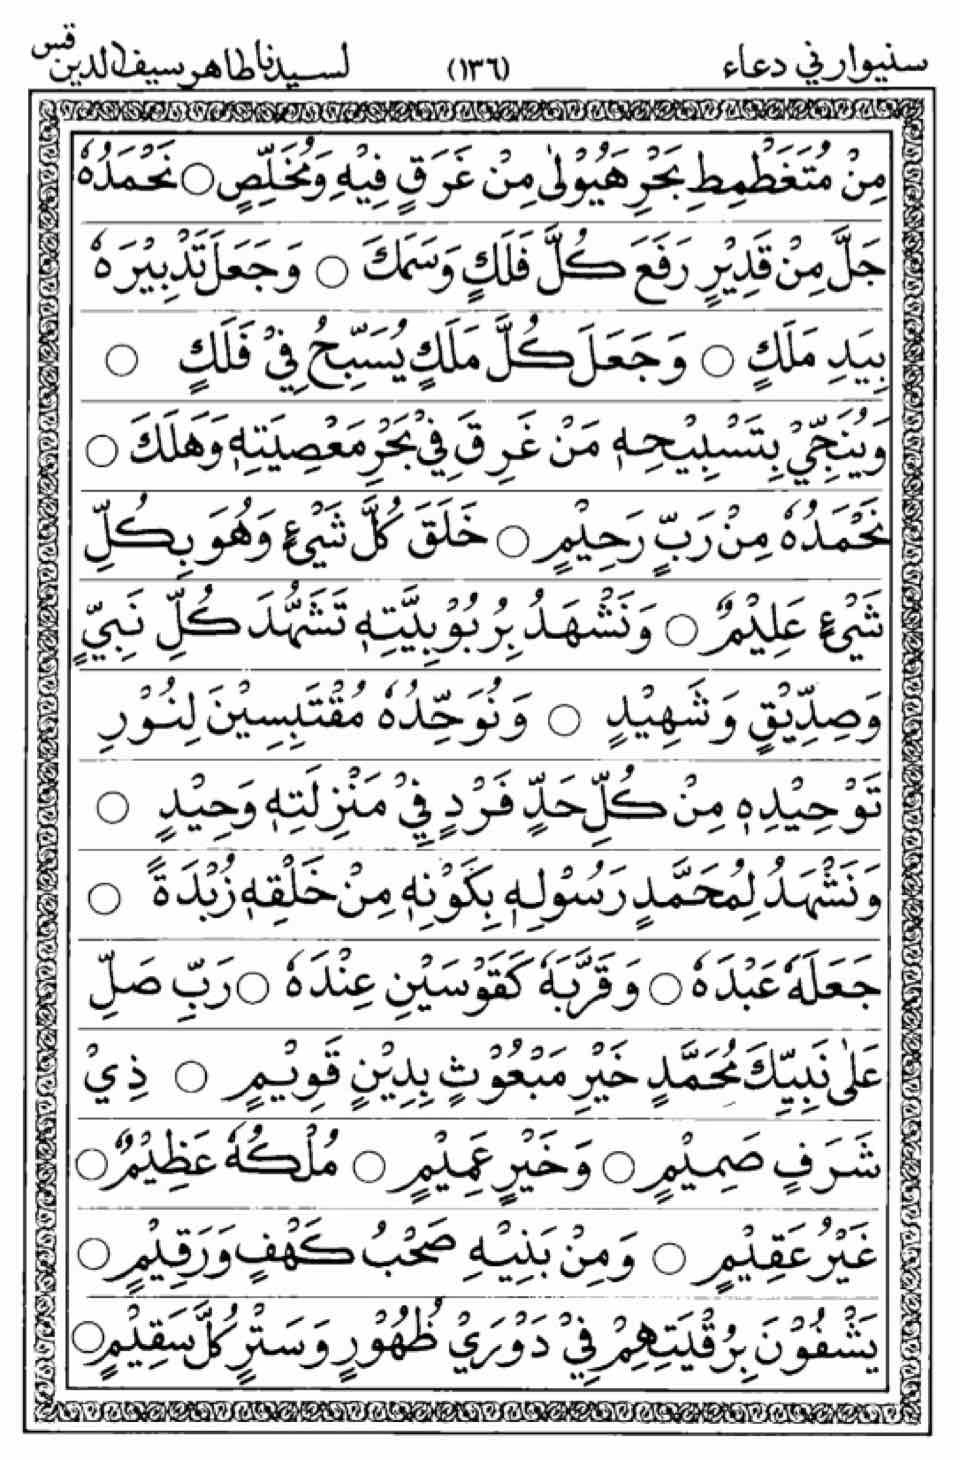 سنيوار ني دعاء (١٣٦) لسيدنا طاهر سيف الدين قس
مِنْ مُتَغَطْمِطِ بَحْرِ هَيُوْلٰى مِنْ غَرَقٍ فِيْهِ وَمُخَلِّصٍ ○ نَحْمَدُهٗ
جَلَّ مِنْ قَدِيْرٍ رَفَعَ كُلَّ فَلَكٍ وَسَمَكَ ○ وَجَعَلَ تَدْبِيْرَهٗ
بِيَدِ مَلَكٍ ○ وَجَعَلَ كُلَّ مَلَكٍ يُسَبِّحُ فِيْ فَلَكٍ ○
وَيُنَجِّيْ بِتَسْبِيْحِهٖ مَنْ غَرِقَ فِيْ بَحْرِ مَعْصِيَتِهٖ وَهَلَكَ ○
نَحْمَدُهٗ مِنْ رَبٍّ رَحِيْمٍ ○ خَلَقَ كُلَّ شَيْءٍ وَهُوَ بِكُلِّ
شَيْءٍ عَلِيْمٌ ○ وَنَشْهَدُ بِرُبُوْبِيَّتِهٖ تَشَهُّدَ كُلِّ نَبِيٍّ
وَصِدِّيْقٍ وَشَهِيْدٍ ○ وَنُوَحِّدُهٗ مُقْتَبِسِيْنَ لِنُوْرِ
تَوْحِيْدِهٖ مِنْ كُلِّ حَدٍّ فَرْدٍ فِيْ مَنْزِلَتِهٖ وَحِيْدٍ ○
وَنَشْهَدُ لِمُحَمَّدٍ رَسُوْلِهٖ بِكَوْنِهٖ مِنْ خَلْقِهٖ زُبْدَةً ○
جَعَلَهٗ عَبْدَهٗ ○ وَقَرَّبَهٗ كَقَوْسَيْنِ عِنْدَهٗ ○ رَبِّ صَلِّ
عَلٰى نَبِيِّكَ مُحَمَّدٍ خَيْرِ مَبْعُوْثٍ بِدِيْنٍ قَوِيْمٍ ○ ذِيْ
شَرَفٍ صَمِيْمٍ ○ وَخَيْرٍ عَمِيْمٍ ○ مُلْكُهٗ عَظِيْمٌ ○
غَيْرُ عَقِيْمٍ ○ وَمِنْ بَنِيْهِ صَحْبُ كَهْفٍ وَرَقِيْمٍ ○
يَشْفُوْنَ بِرُقْيَتِهِمْ فِيْ دَوْرَيْ ظُهُوْرٍ وَسَتْرٍ كُلَّ سَقِيْمٍ ○